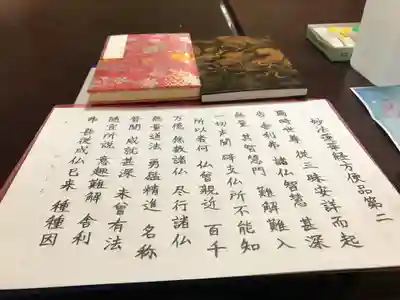 妙法蓮華経方便品第二
爾時世尊 従三昧安詳而起
告舎利弗 諸仏智慧 甚深
無量 其智慧門 難解難入
一切声聞 辟支仏所不能知
所以者何 仏曾親近 百千
万億 無数諸仏 尽行諸仏
無量道法 勇猛精進 名称
普聞 成就甚深 未曾有法
随宜所説 意趣難解 舎利
弗 吾従成仏已来 種種因